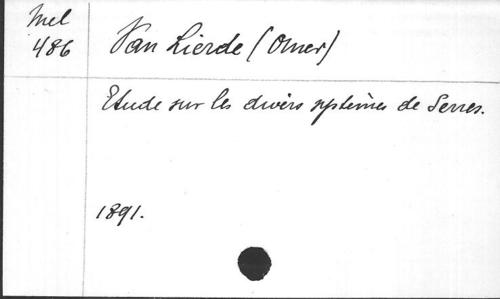 Mel
486
Van Lierde (Omer)
Etude sur les divers systèmes de Serres.
1891.